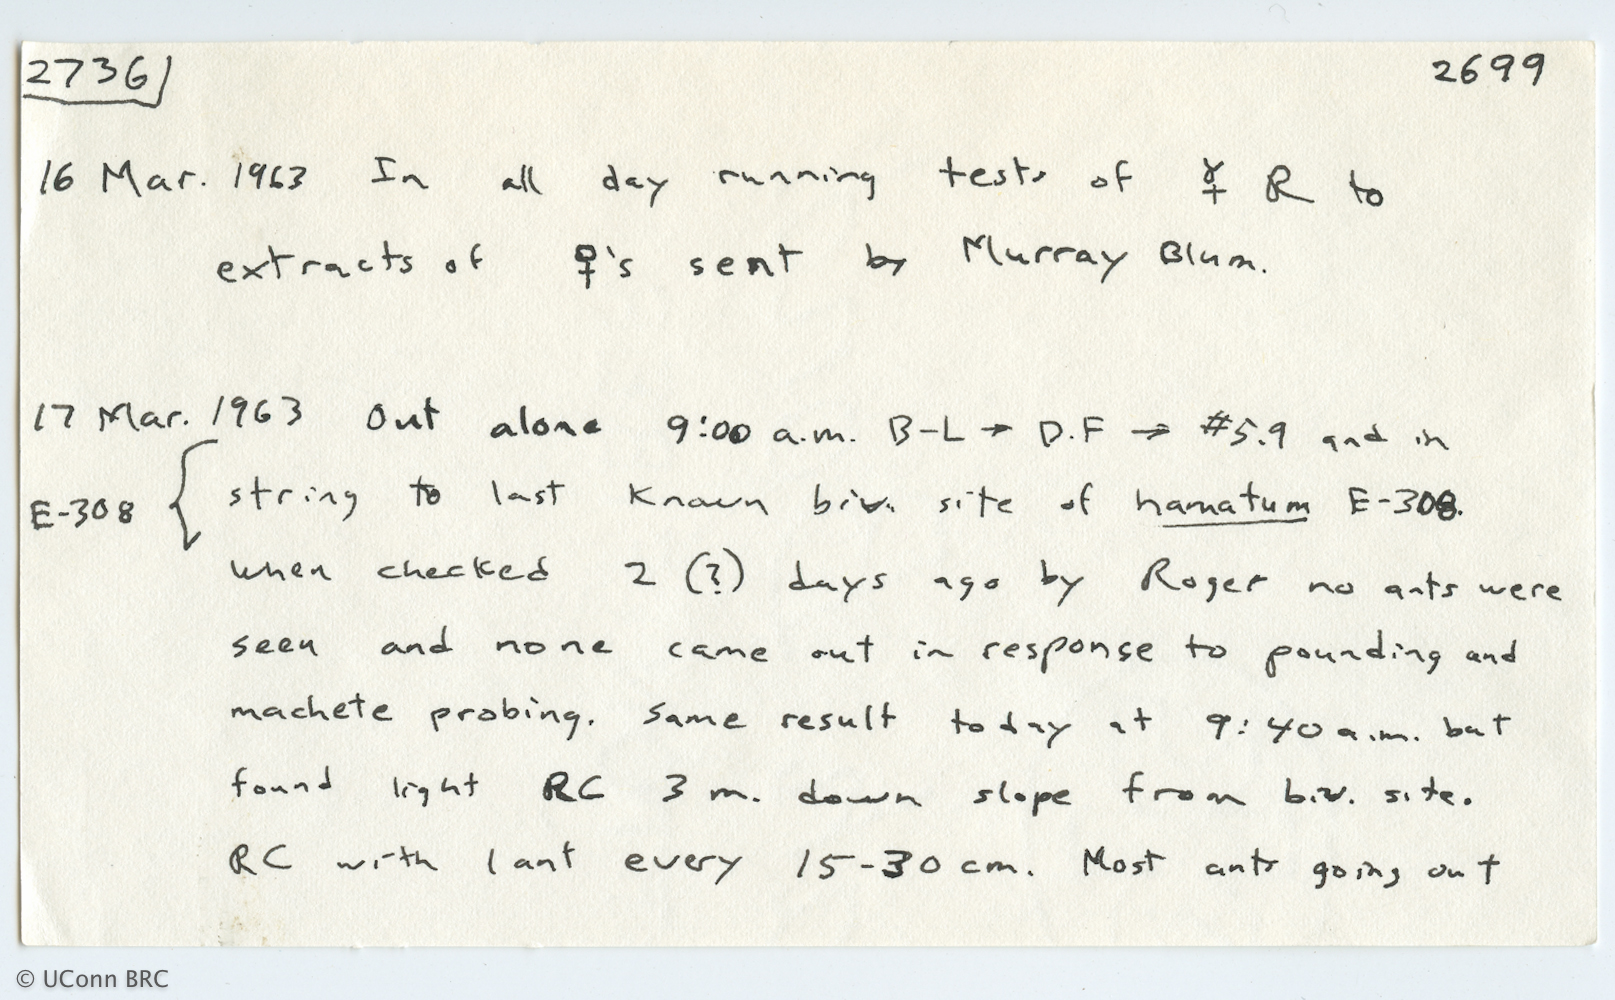 2736 2699
16 Mar. 1963 In all day running tests of ☿ R to
extracts of ♀'s sent by Murray Blum.
17 Mar. 1963 Out alone 9:00 a.m. B-L → D.F → #5.9 and in
E-308 { string to last known biv. site of hamatum E-308.
when checked 2 (?) days ago by Roger no ants were
seen and none came out in response to pounding and
machete probing. Same result today at 9:40 a.m. but
found light RC 3 m. down slope from biv. site.
RC with 1 ant every 15-30 cm. Most ants going out
© UConn BRC